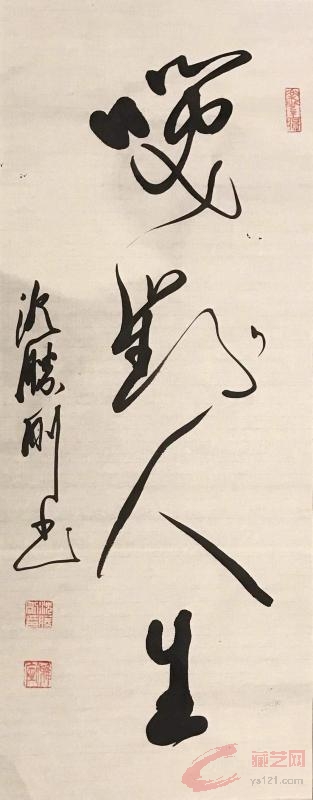 笑對人生
沈勝刚书
藏艺网
ys121.com